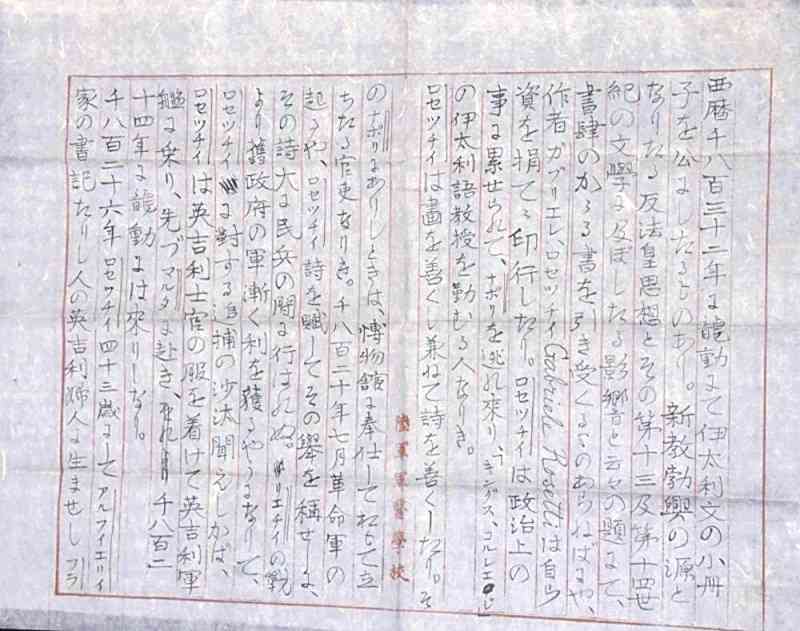 西暦千八百三十二年に龍動にて伊太利文の小冊
子を公にしたるものあり。新教勃興の源と
なりたる反法皇思想とその第十三及第十四世
紀の文學に及ぼしたる影響と云々の題にて、
書肆のかゝる書を引き受くるものあらねばにや、
作者ガブリエレ、ロセツチイ Gabriele Rosetti は自ら
資を捐てゝ印行したり。ロセツチイは政治上の
事に累せられて、ナポリを逃れ來り、「キングス、コルレエジ」
の伊太利語教授を勤むる人なりき。
ロセツチイは畫を善くし兼ねて詩を善くしたり。そ
陸軍軍醫學校
のナポリにありしときは、博物館に奉仕しておもて立
ちたる官吏なりき。千八百二十年七月革命軍の
起るや、ロセツチイ詩を賦してその擧を稱せしに、
その詩大に民兵の間に行はれぬ。リエチイの戰
より獲政府の軍漸く利を獲るやうになりて、
ロセツチイに對する追捕の沙汰聞えしかば、
ロセツチイは英吉利士官の服を着けて英吉利軍
艦に乘り、先づマルタに赴き、それより千八百二
十四年に龍動には來りしなり。
千八百二十六年ロセツチイ四十三歳にして アルフイエリイ
家の書記たりし人の英吉利婦人に生ませし フラ